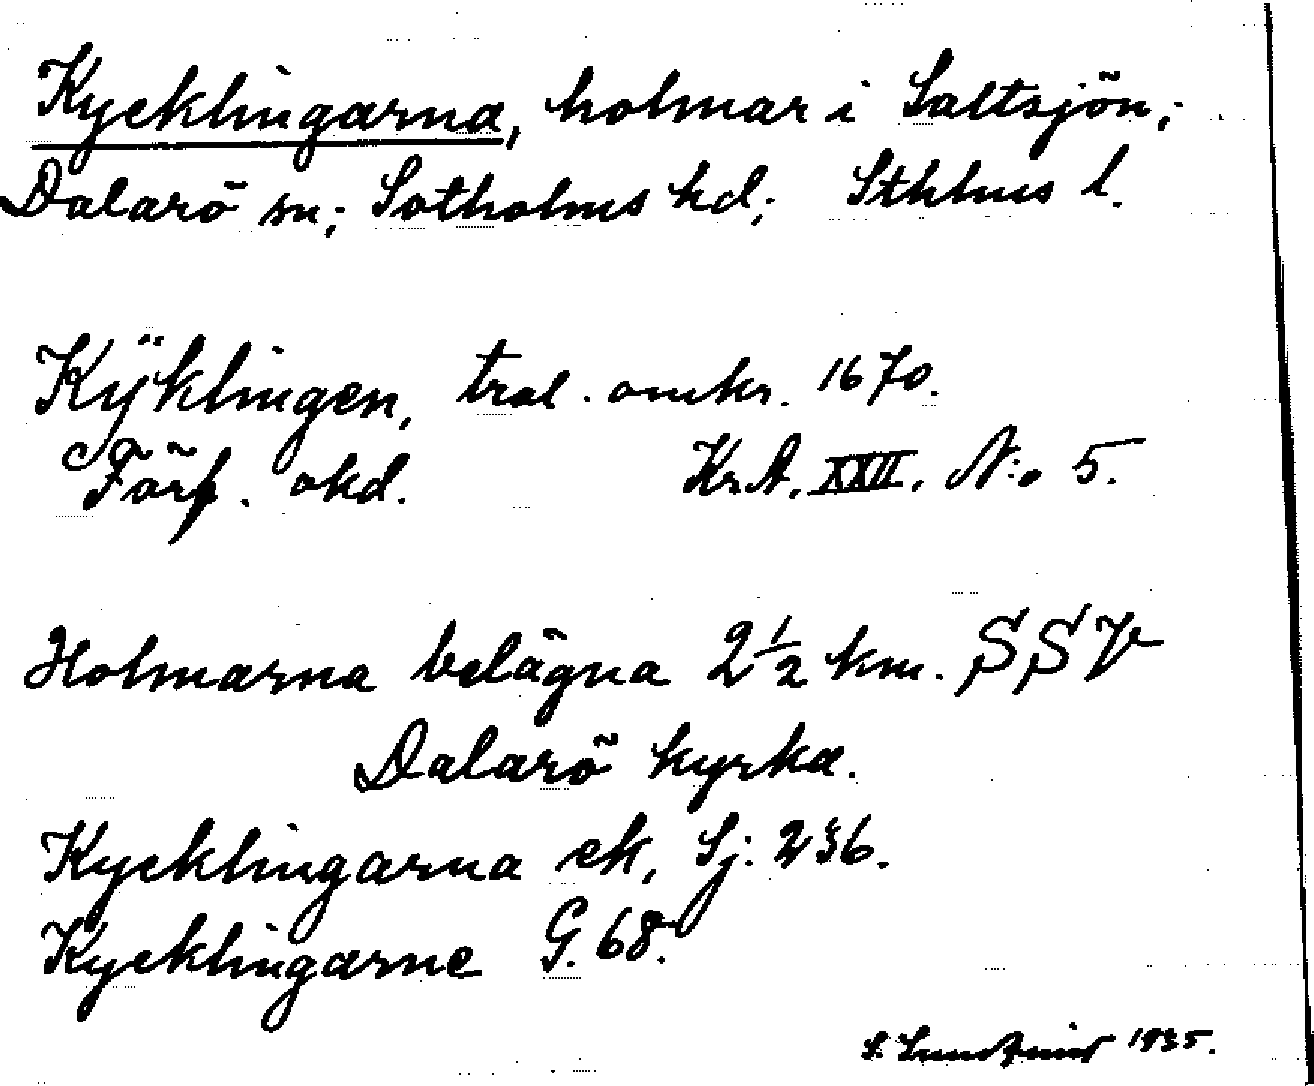 Kycklingarna, holmar i Saltsjön;
Dalarö sn; Sotholms hd; Sthlms l.
Kÿklingen, tral. omkr. 1670.
Förf. okd. Kr.A. XXII. N:o 5.
Holmarna belägna 2½ km. SSV
Dalarö kyrka.
Kycklingarna ek, Sj: 236.
Kycklingarne G. 68.
S. 1935.